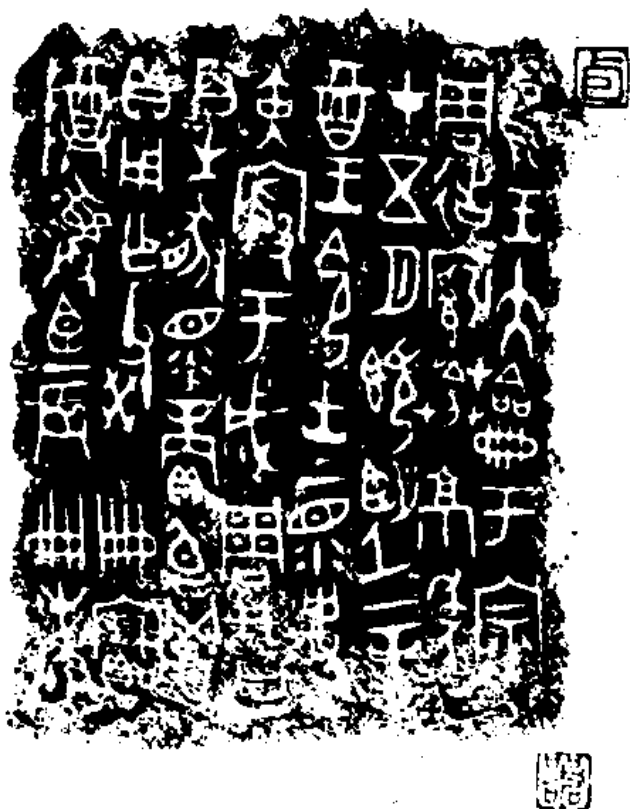 隹王大龠于宗
周㣈𩜁𦯔京年
才五月既望辛
酉王令士上眔史
寅殷于成周
百生豚眔賞卣鬯
貝用乍父癸寶
尊彝臣辰册